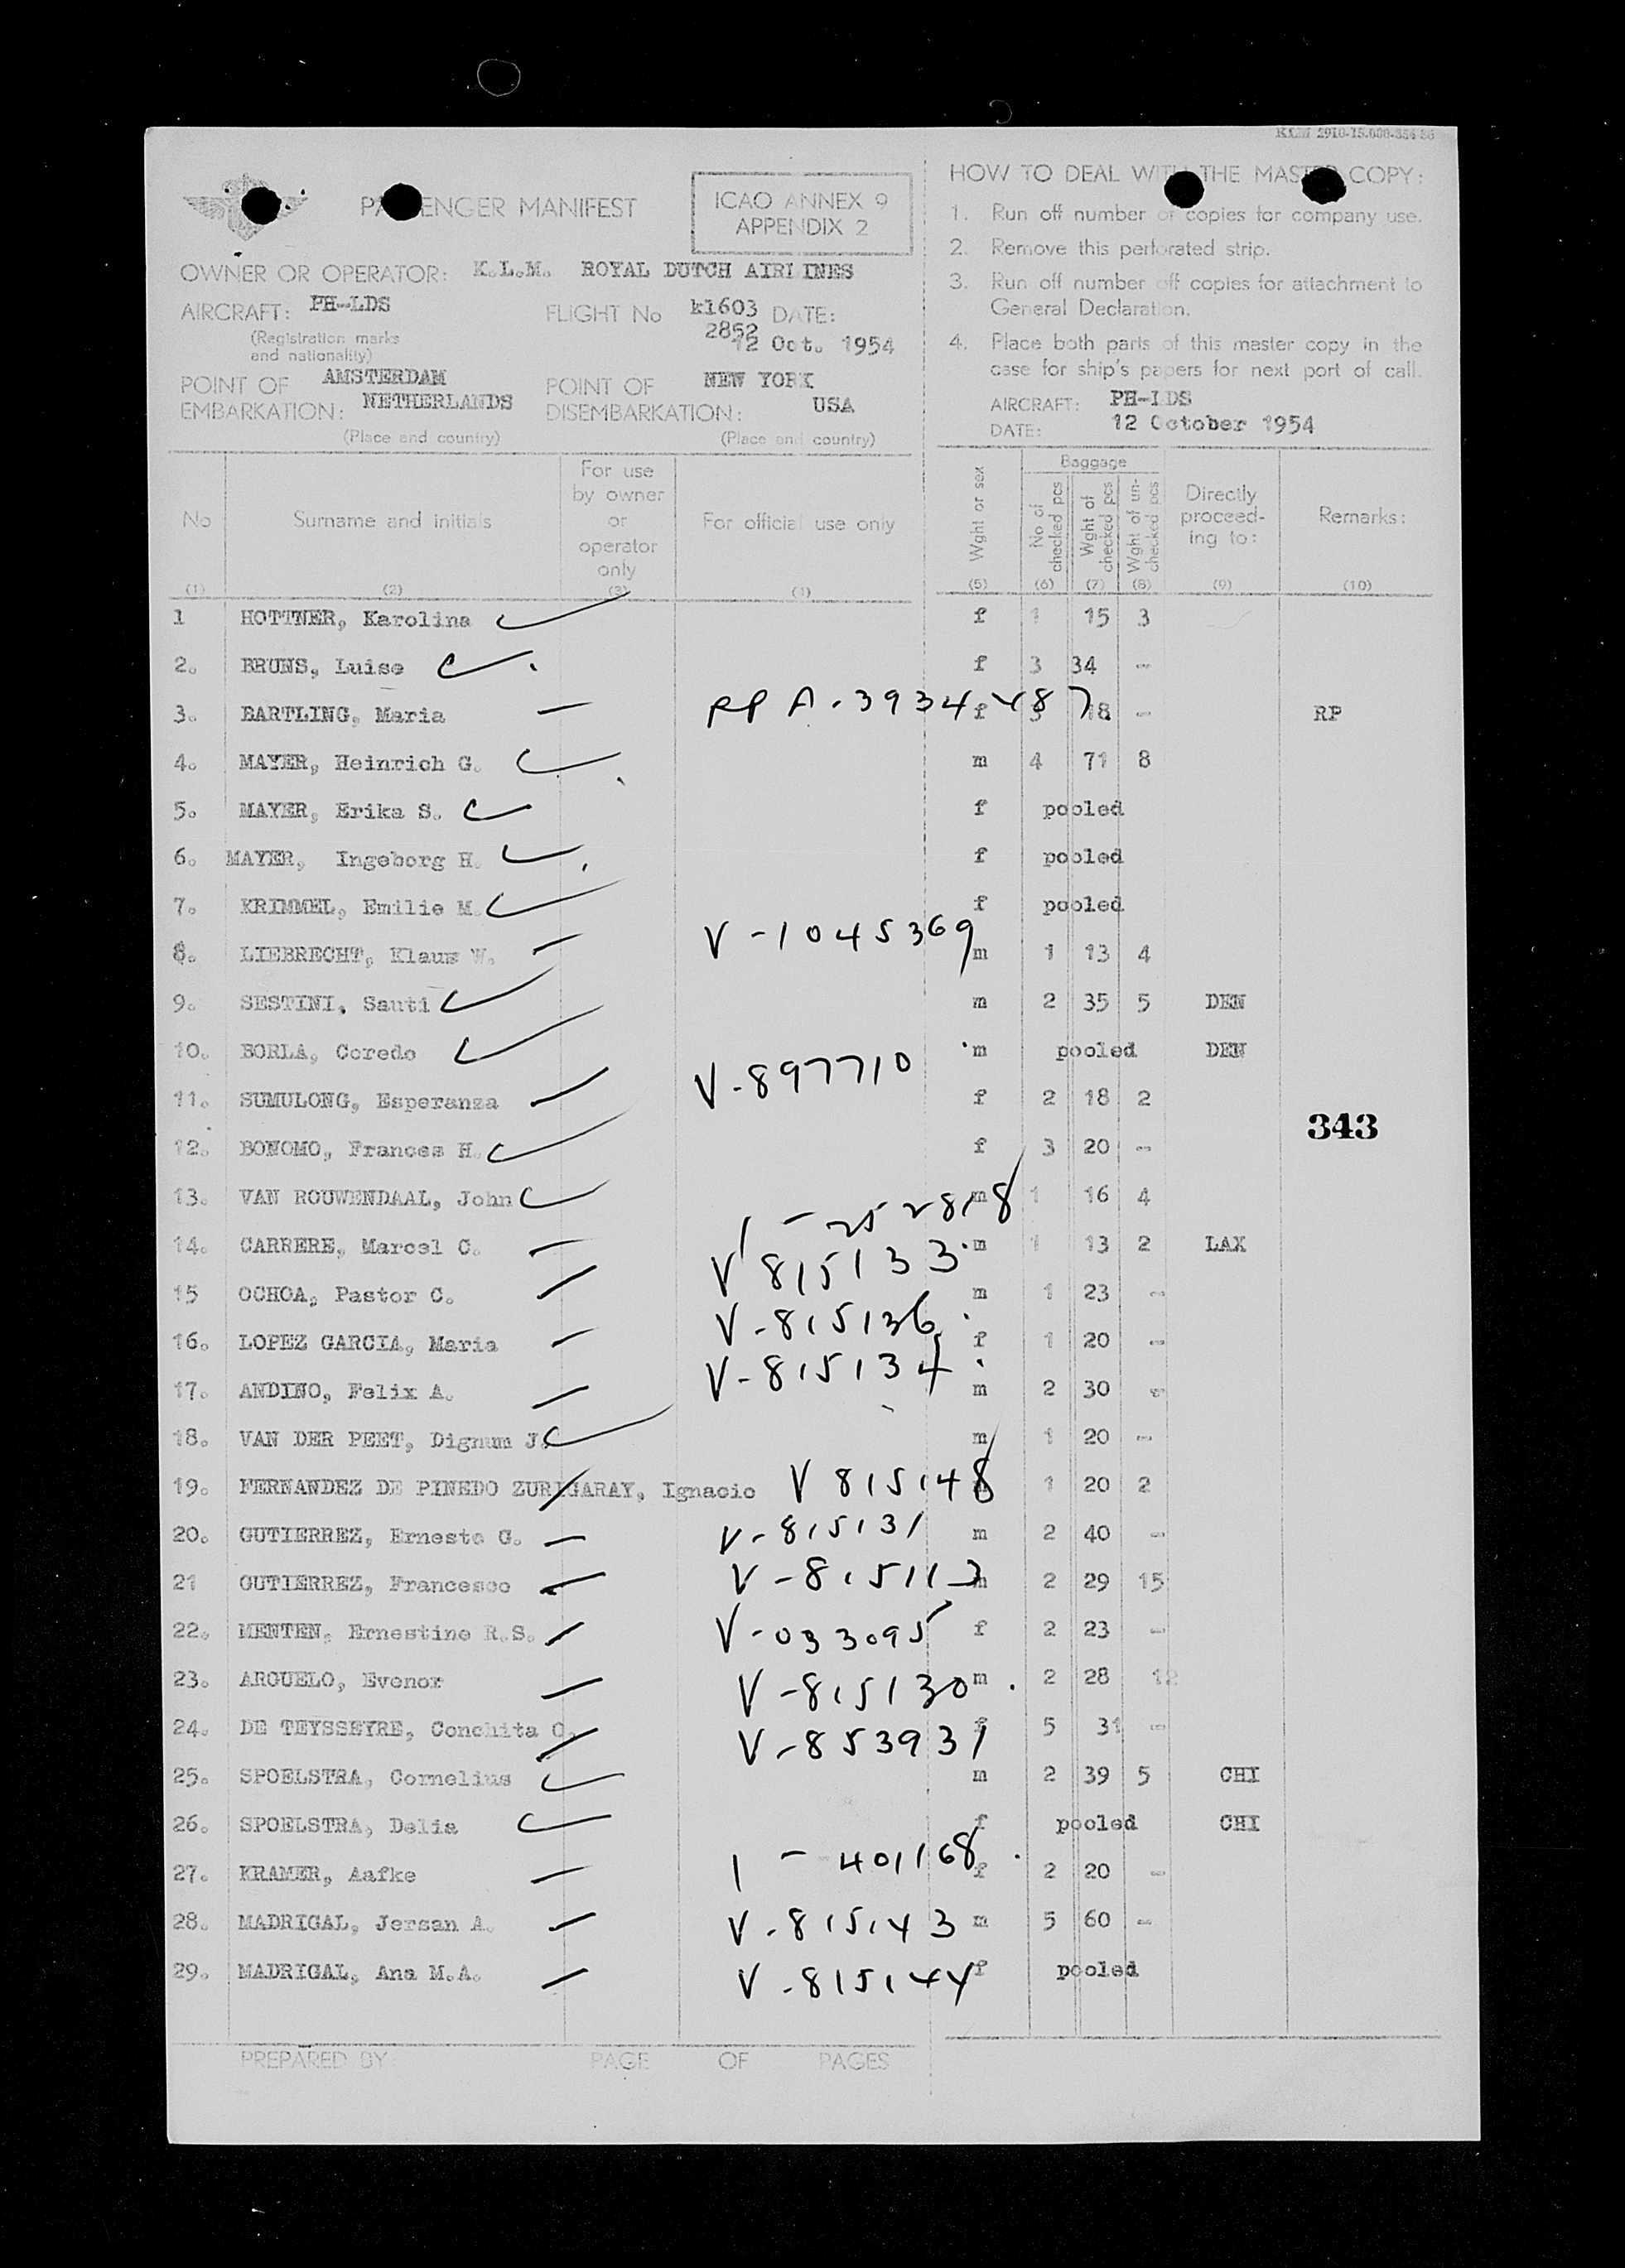 KLM 2910-15.000-354-56
PASSENGER MANIFEST
ICAO ANNEX 9
APPENDIX 2
OWNER OR OPERATOR: K.L.M. ROYAL DUTCH AIRLINES
AIRCRAFT: PH-LDS
(Registration marks
and nationality)
FLIGHT No k1603 DATE:
2852
12 Oct. 1954
POINT OF
EMBARKATION: AMSTERDAM
NETHERLANDS
(Place and country)
POINT OF
DISEMBARKATION: NEW YORK
USA
(Place and country)
HOW TO DEAL WITH THE MASTER COPY:
1. Run off number of copies for company use.
2. Remove this perforated strip.
3. Run off number off copies for attachment to
General Declaration.
4. Place both parts of this master copy in the
case for ship's papers for next port of call.
AIRCRAFT: PH-LDS
DATE: 12 October 1954
No Surname and initials For use by owner or operator only For official use only Wght or sex Baggage No of checked pcs Wght of checked pcs Wght of un-checked pcs Directly proceed-ing to: Remarks:
(1) (2) (3) (4) (5) (6) (7) (8) (9) (10)
1 HOTTNER, Karolina f 1 15 3
2. BRUNS, Luise f 3 34 -
3. BARTLING, Maria RP A-3934487 f 3 18 - RP
4. MAYER, Heinrich G. m 4 71 8
5. MAYER, Erika S. f pooled
6. MAYER, Ingeborg H. f pooled
7. KRIMMEL, Emilie M. f pooled
8. LIEBRECHT, Klaus W. V-1045369 m 1 13 4
9. SESTINI, Sauti m 2 35 5 DEN
10. BORLA, Coredo m pooled DEN
11. SUMULONG, Esperanza V-897710 f 2 18 2
343
12. BONOMO, Frances H. f 3 20 -
13. VAN ROUWENDAAL, John m 1 16 4
14. CARRERE, Marcel C. m 1 13 2 LAX
15 OCHOA, Pastor C. V 815133 m 1 23 -
16. LOPEZ GARCIA, Maria V-815136 f 1 20 -
17. ANDINO, Felix A. V-815134 m 2 30 -
18. VAN DER PEET, Dignum J. m 1 20 -
19. FERNANDEZ DE PINEDO ZURIGARAY, Ignacio V 815148 1 20 2
20. GUTIERREZ, Ernesto G. V-815131 m 2 40 -
21 GUTIERREZ, Francesco m 2 29 15
22. MENTEN, Ernestine R.S. V-033095 f 2 23 -
23. ARGUELO, Evenor V-815130 m 2 28 12
24. DE TEYSSEYRE, Conchita V-853931 f 5 31 -
25. SPOELSTRA, Cornelius m 2 39 5 CHI
26. SPOELSTRA, Delia f pooled CHI
27. KRAMER, Aafke 1 - 401168 f 2 20 -
28. MADRIGAL, Jersan A. V-815143 m 5 60 -
29. MADRIGAL, Ana M.A. V-815144 f pooled
PREPARED BY: PAGE OF PAGES